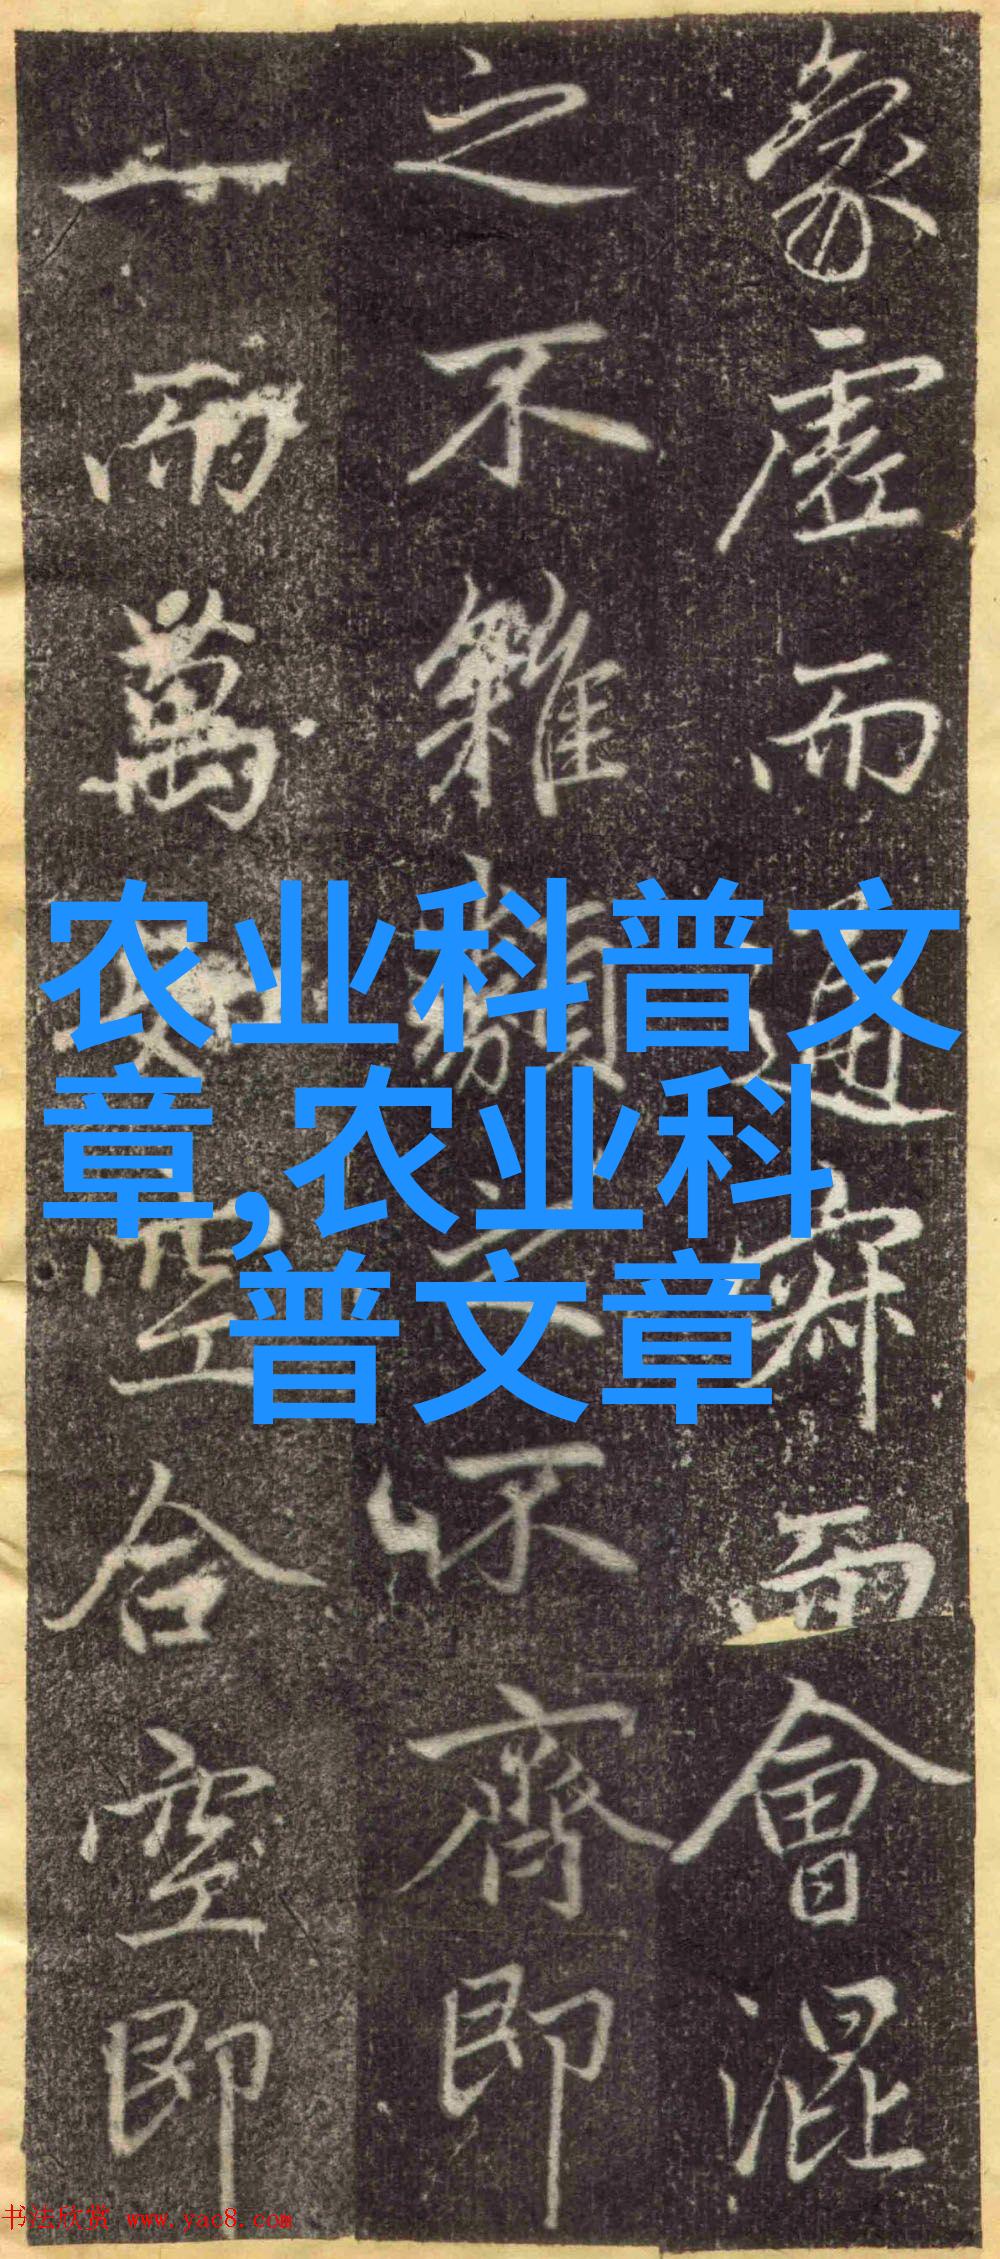 象虛而通寂而會混
之不雜類之不齊即
一而萬空合空即
农业科普文
章,农业科
普文章
书法欣赏 www.yac8.com